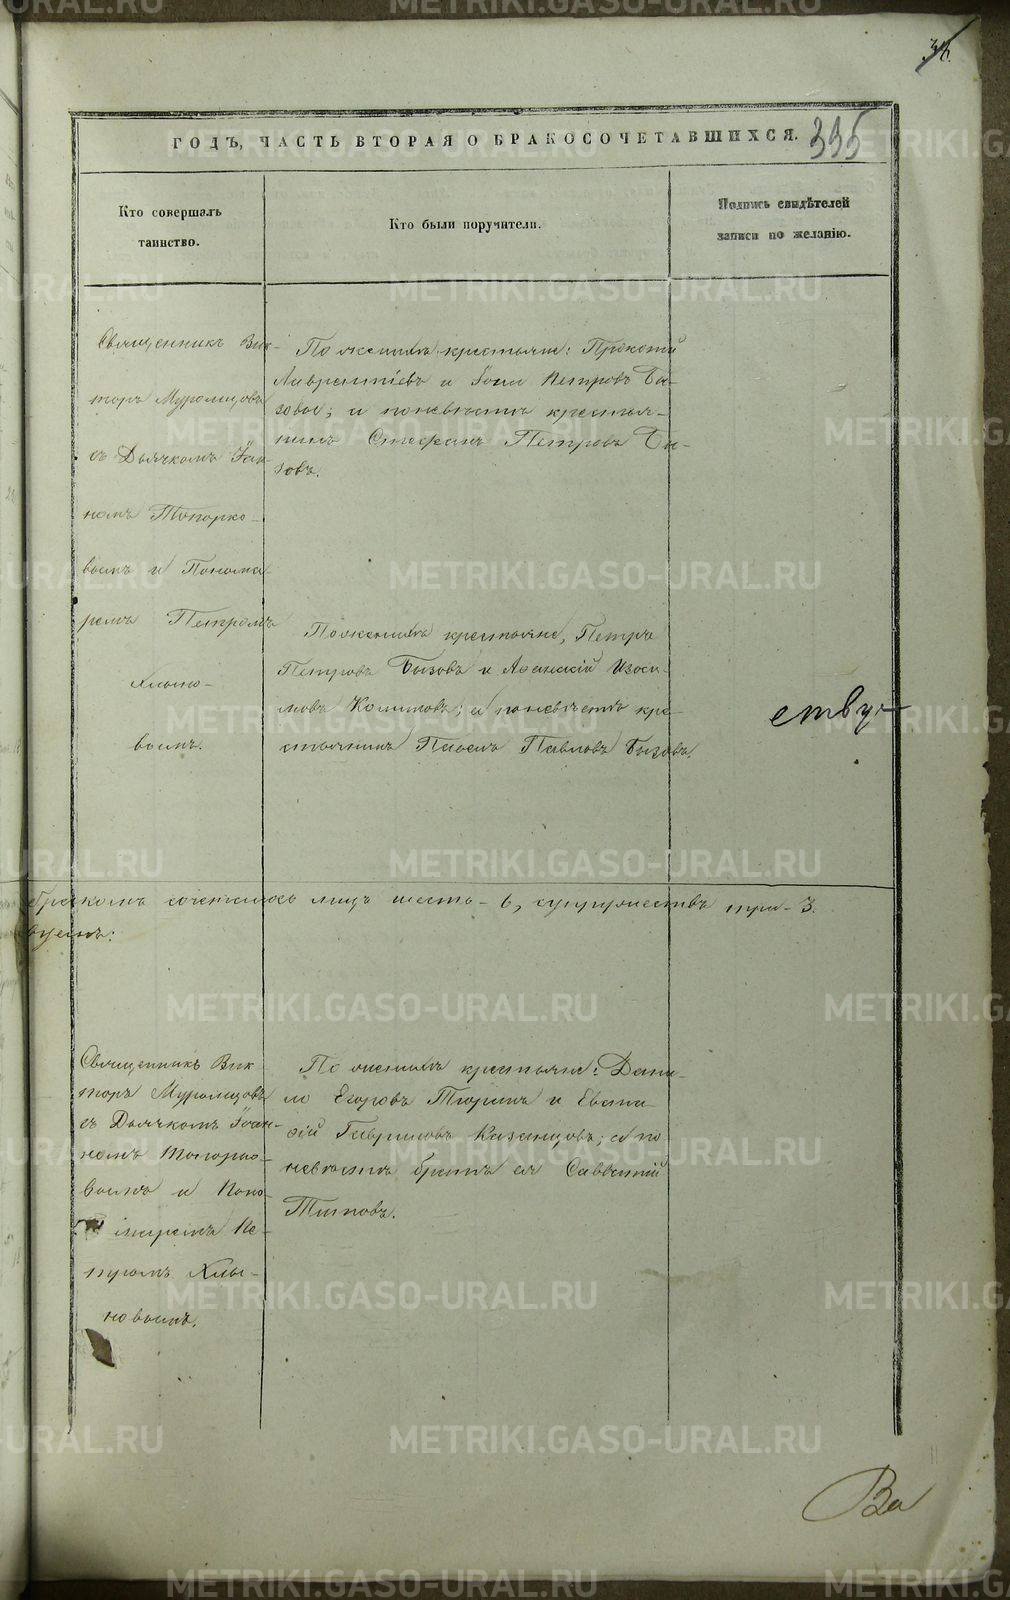 36.
ГОДЪ, ЧАСТЬ ВТОРАЯ О БРАКОСОЧЕТАВШИХСЯ.
395
Кто совершалъ
таинство.
Кто были поручители.
Подпись свидѣтелей
записи по желанію.
Священникъ Вик-
торъ Муромцовъ
съ Дьячкомъ Іоан-
номъ Топорко-
вымъ и Понома-
ремъ Петромъ
Хлыно-
вымъ.
По женихѣ крестьяне: Прокопій
Лаврентіевъ и Іоил Петровъ Бы-
зовы; и по невѣстѣ крестья-
нинъ Стефанъ Петровъ Бы-
зовъ.
По женихѣ крестьяне, Петръ
Петровъ Бызовъ и Аѳанасій Изоси-
мовъ; а по невѣстѣ кре-
стьянинъ Павелъ Павловъ Бызовъ.
ству
бракомъ сочеталось лицъ шесть - 6, супружествъ три - 3.
Священникъ Вик-
торъ Муромцовъ
съ Дьячкомъ Іоан-
номъ Топорко-
вымъ и Поно-
маремъ Пе-
тромъ Хлы-
новымъ.
По женихѣ крестьяне: Дани-
ло Егоровъ и
Гавриловъ Казанцовъ; а по
невѣстѣ братъ ея Савватій
Ва
METRIKI.GASO-URAL.RU